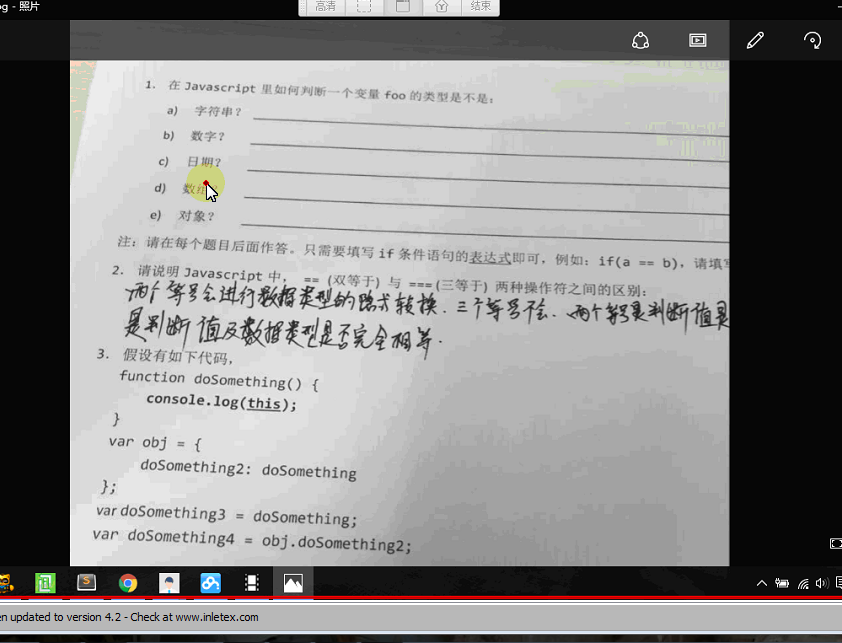 og - 照片
高清
结束
1. 在 Javascript 里如何判断一个变量 foo 的类型是不是:
a) 字符串?
b) 数字?
c) 日期?
d) 数组?
e) 对象?
注: 请在每个题目后面作答。只需要填写 if 条件语句的表达式即可, 例如: if(a == b), 请填写
2. 请说明 Javascript 中, == (双等于) 与 === (三等于) 两种操作符之间的区别:
两个等号会进行数据类型的隐式转换. 三个等号不会. 两个等号是判断值是
是判断值及数据类型是否完全相等.
3. 假设有如下代码,
function doSomething() {
console.log(this);
}
var obj = {
doSomething2: doSomething
};
var doSomething3 = doSomething;
var doSomething4 = obj.doSomething2;
en updated to version 4.2 - Check at www.inletex.com